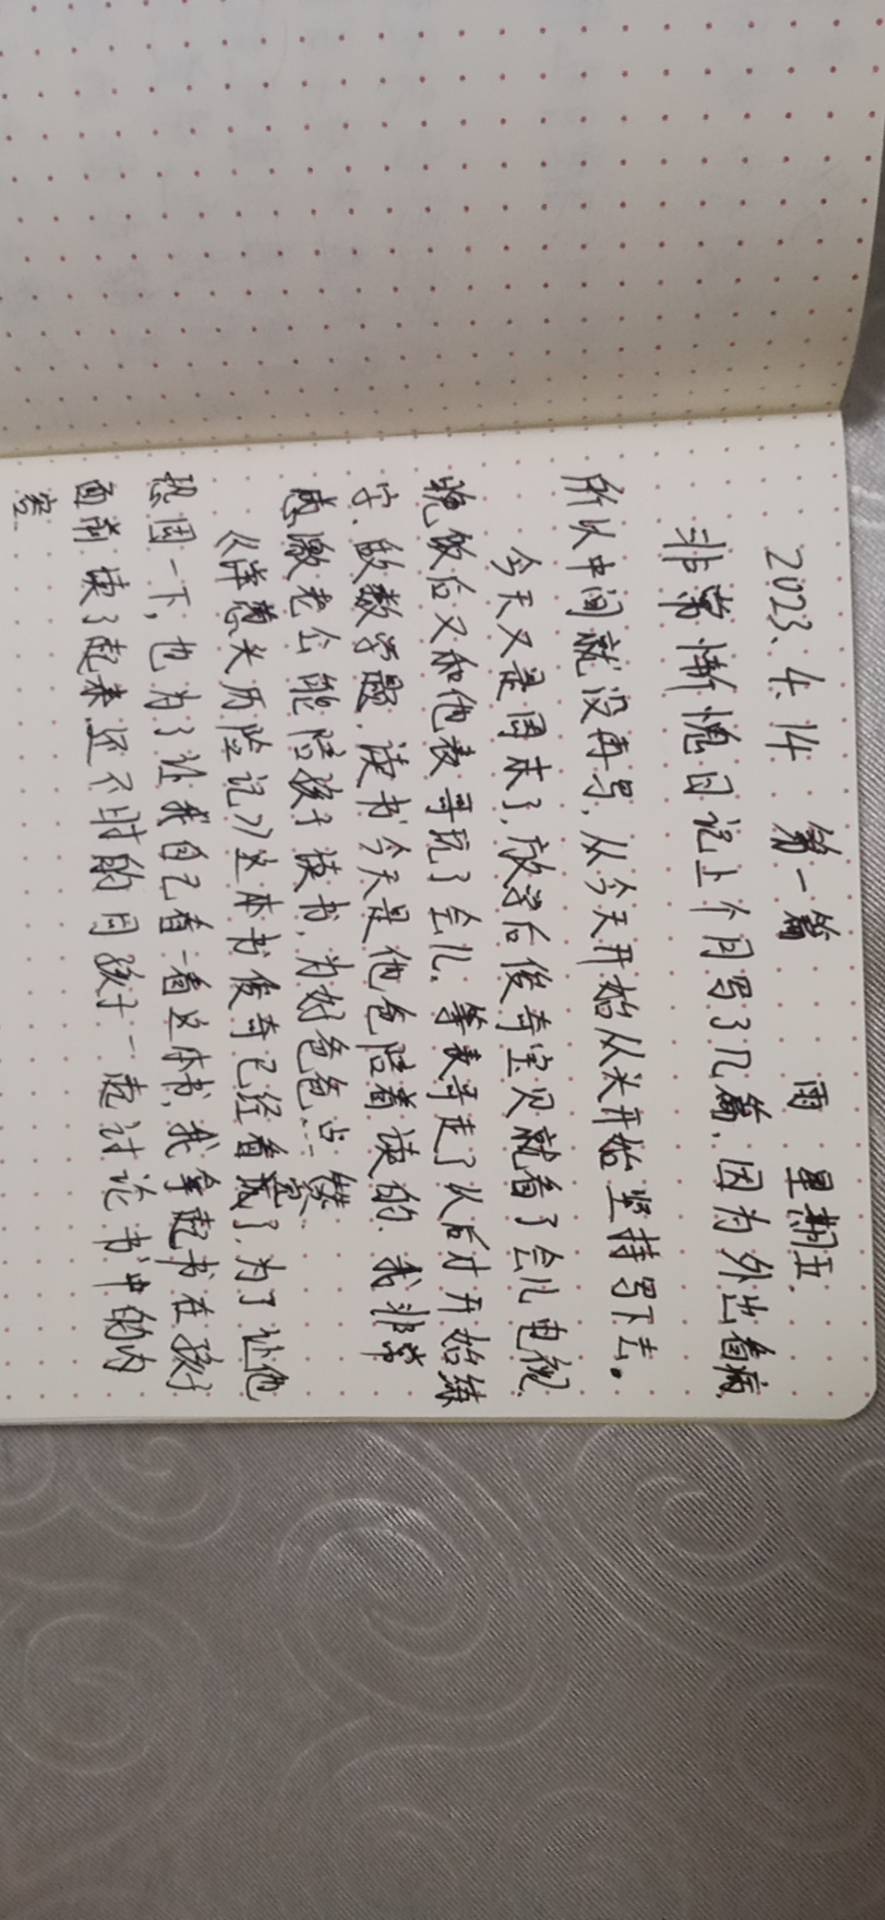 2023、4、14 第一篇 雨 星期五
非常惭愧日记上个月写了几篇，因为外出看病，
所以中间就没再写，从今天开始从头开始坚持写下去。
今天又是周末了，放学后俊奇宝贝就看了会儿电视，
晚饭后又和他表哥玩了会儿。等表哥走了以后才开始练
字、做数学题、读书今天是他爸陪着读的，我非常
感激老公能陪孩子读书，为好爸爸点赞
《洋葱头历险记》这本书俊奇已经看完了，为了让他
巩固一下，也为了让我自己看一看这本书，我拿起书在孩子
面前读了起来，还不时的同孩子一起讨论书中的内
容